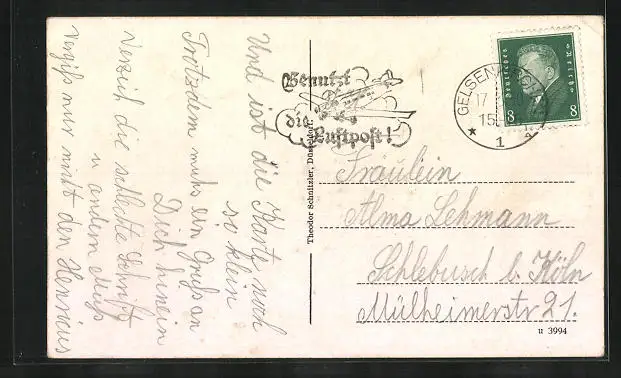 Und ist die Karte noch
so klein
Trotzdem muß ein Gruß an
Dich hinein
Verzeih die schlechte Schrift
u andern
Vergiß nur nicht den
Theodor Schnitzler, Düsseldorf.
Benutzt
die
Luftpost!
GELSEN
17
15
* 1
Deutsches Reich
8 8
Fräulein
Alma Lehmann
Schlebusch b. Köln
Mülheimerstr 21.
u 3994